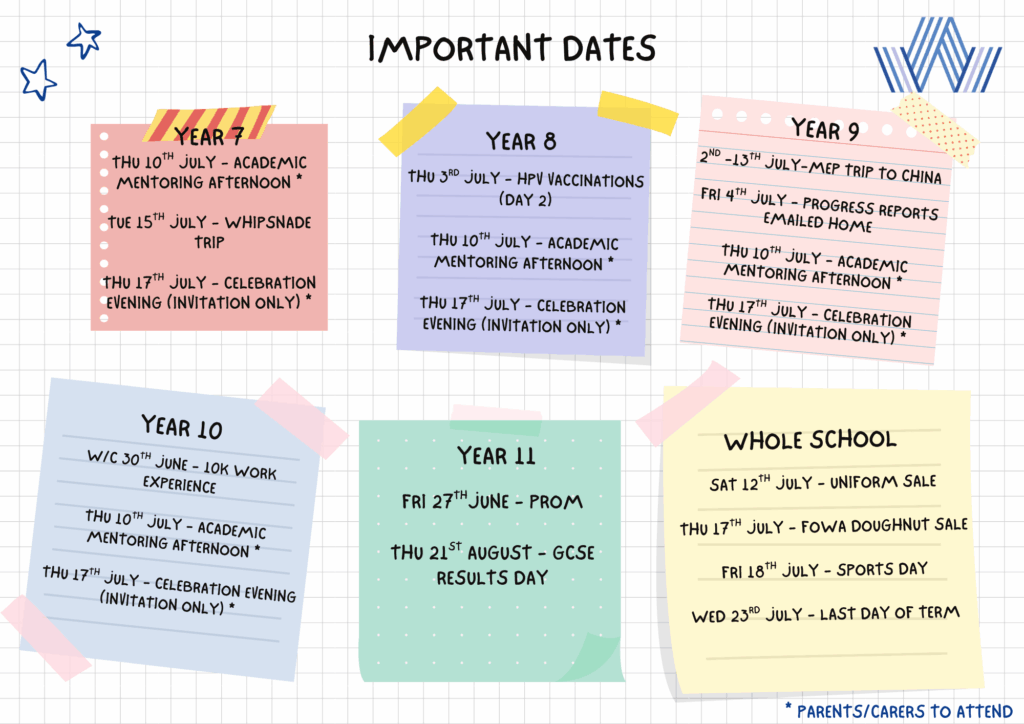 IMPORTANT DATES
YEAR 7
THU 10TH JULY - ACADEMIC
MENTORING AFTERNOON *
TUE 15TH JULY - WHIPSNADE
TRIP
THU 17TH JULY - CELEBRATION
EVENING (INVITATION ONLY) *
YEAR 8
THU 3RD JULY - HPV VACCINATIONS
(DAY 2)
THU 10TH JULY - ACADEMIC
MENTORING AFTERNOON *
THU 17TH JULY - CELEBRATION
EVENING (INVITATION ONLY) *
YEAR 9
2ND -13TH JULY-MEP TRIP TO CHINA
FRI 4TH JULY - PROGRESS REPORTS
EMAILED HOME
THU 10TH JULY - ACADEMIC
MENTORING AFTERNOON *
THU 17TH JULY - CELEBRATION
EVENING (INVITATION ONLY) *
YEAR 10
W/C 30TH JUNE - 10K WORK
EXPERIENCE
THU 10TH JULY - ACADEMIC
MENTORING AFTERNOON *
THU 17TH JULY - CELEBRATION EVENING
(INVITATION ONLY) *
YEAR 11
FRI 27TH JUNE - PROM
THU 21ST AUGUST - GCSE
RESULTS DAY
WHOLE SCHOOL
SAT 12TH JULY - UNIFORM SALE
THU 17TH JULY - FOWA DOUGHNUT SALE
FRI 18TH JULY - SPORTS DAY
WED 23RD JULY - LAST DAY OF TERM
* PARENTS/CARERS TO ATTEND